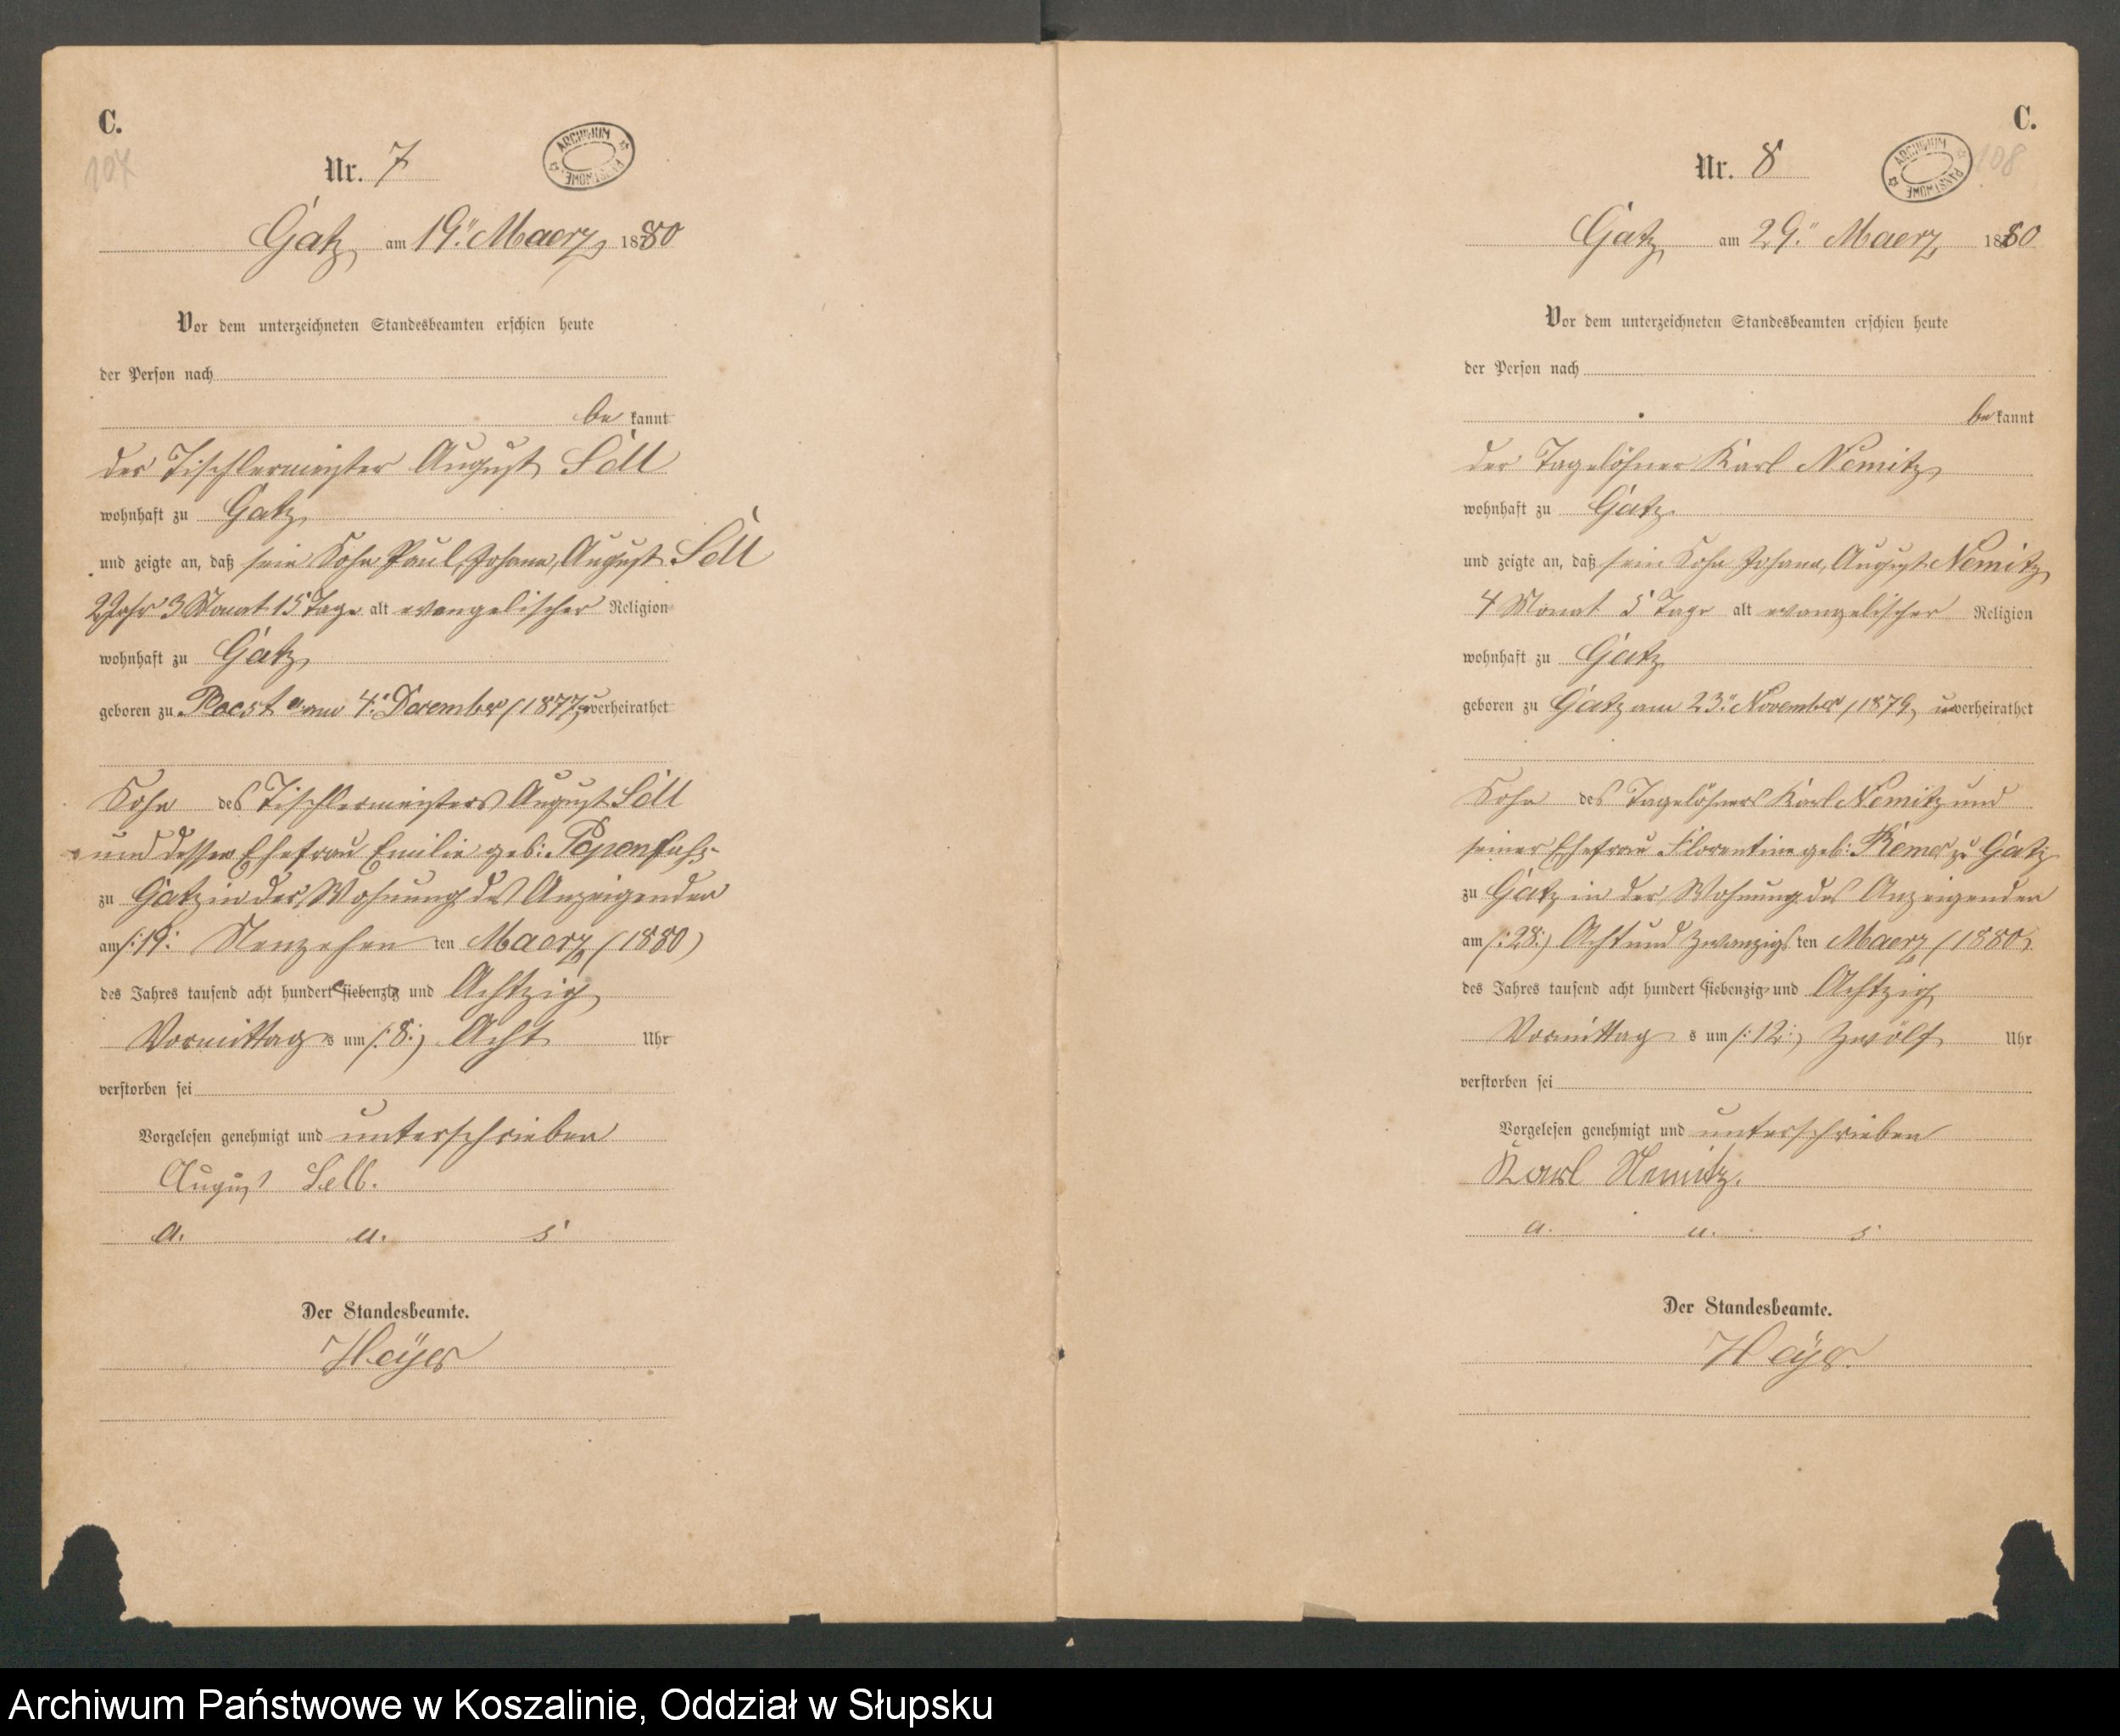 C.
107
Nr. 7
ARCHIWUM PAŃSTWOWE
Gatz am 19." Maerz 1880
Vor dem unterzeichneten Standesbeamten erschien heute
der Person nach
be kannt
der Tischlermeister August Söll
wohnhaft zu Gatz
und zeigte an, daß sein Sohn Paul, Johann, August Söll
2 Jahr 3 Monat 15 Tage alt evangelischer Religion
wohnhaft zu Gatz
geboren zu am 4." December (1877) unverheirathet
Sohn des Tischlermeisters August Söll
und dessen Ehefrau Emilie geb: Popenfuhs
zu Gatz in der Wohnung des Anzeigenden
am /:19: Nenzehen ten Maerz (1880)
des Jahres tausend acht hundert siebenzig und Achtzig
Vormittag s um /:8:) Acht Uhr
verstorben sei
Vorgelesen genehmigt und unterschrieben
August Sell.
a. u. s
Der Standesbeamte.
Heÿer
C.
108
Nr. 8
ARCHIWUM PAŃSTWOWE
Gatz am 29." Maerz 1880
Vor dem unterzeichneten Standesbeamten erschien heute
der Person nach
be kannt
der Tagelöhner Karl Nemitz
wohnhaft zu Gatz
und zeigte an, daß sein Sohn Johann, August Nemitz
4 Monat 5 Tage alt evangelischer Religion
wohnhaft zu Gatz
geboren zu Gatz am 23." November (1879, unverheirathet
Sohn des Tagelöhners Karl Nemitz und
seiner Ehefrau Florentine geb: Remer zu Gatz
zu Gatz in der Wohnung des Anzeigenden
am /:28:) Acht und zwanzigsten Maerz (1880)
des Jahres tausend acht hundert siebenzig und Achtzig
Vormittag s um /:12:) Zwölf Uhr
verstorben sei
Vorgelesen genehmigt und unterschrieben
Karl Nemitz.
a. u. s
Der Standesbeamte.
Heÿer.
Archiwum Państwowe w Koszalinie, Oddział w Słupsku